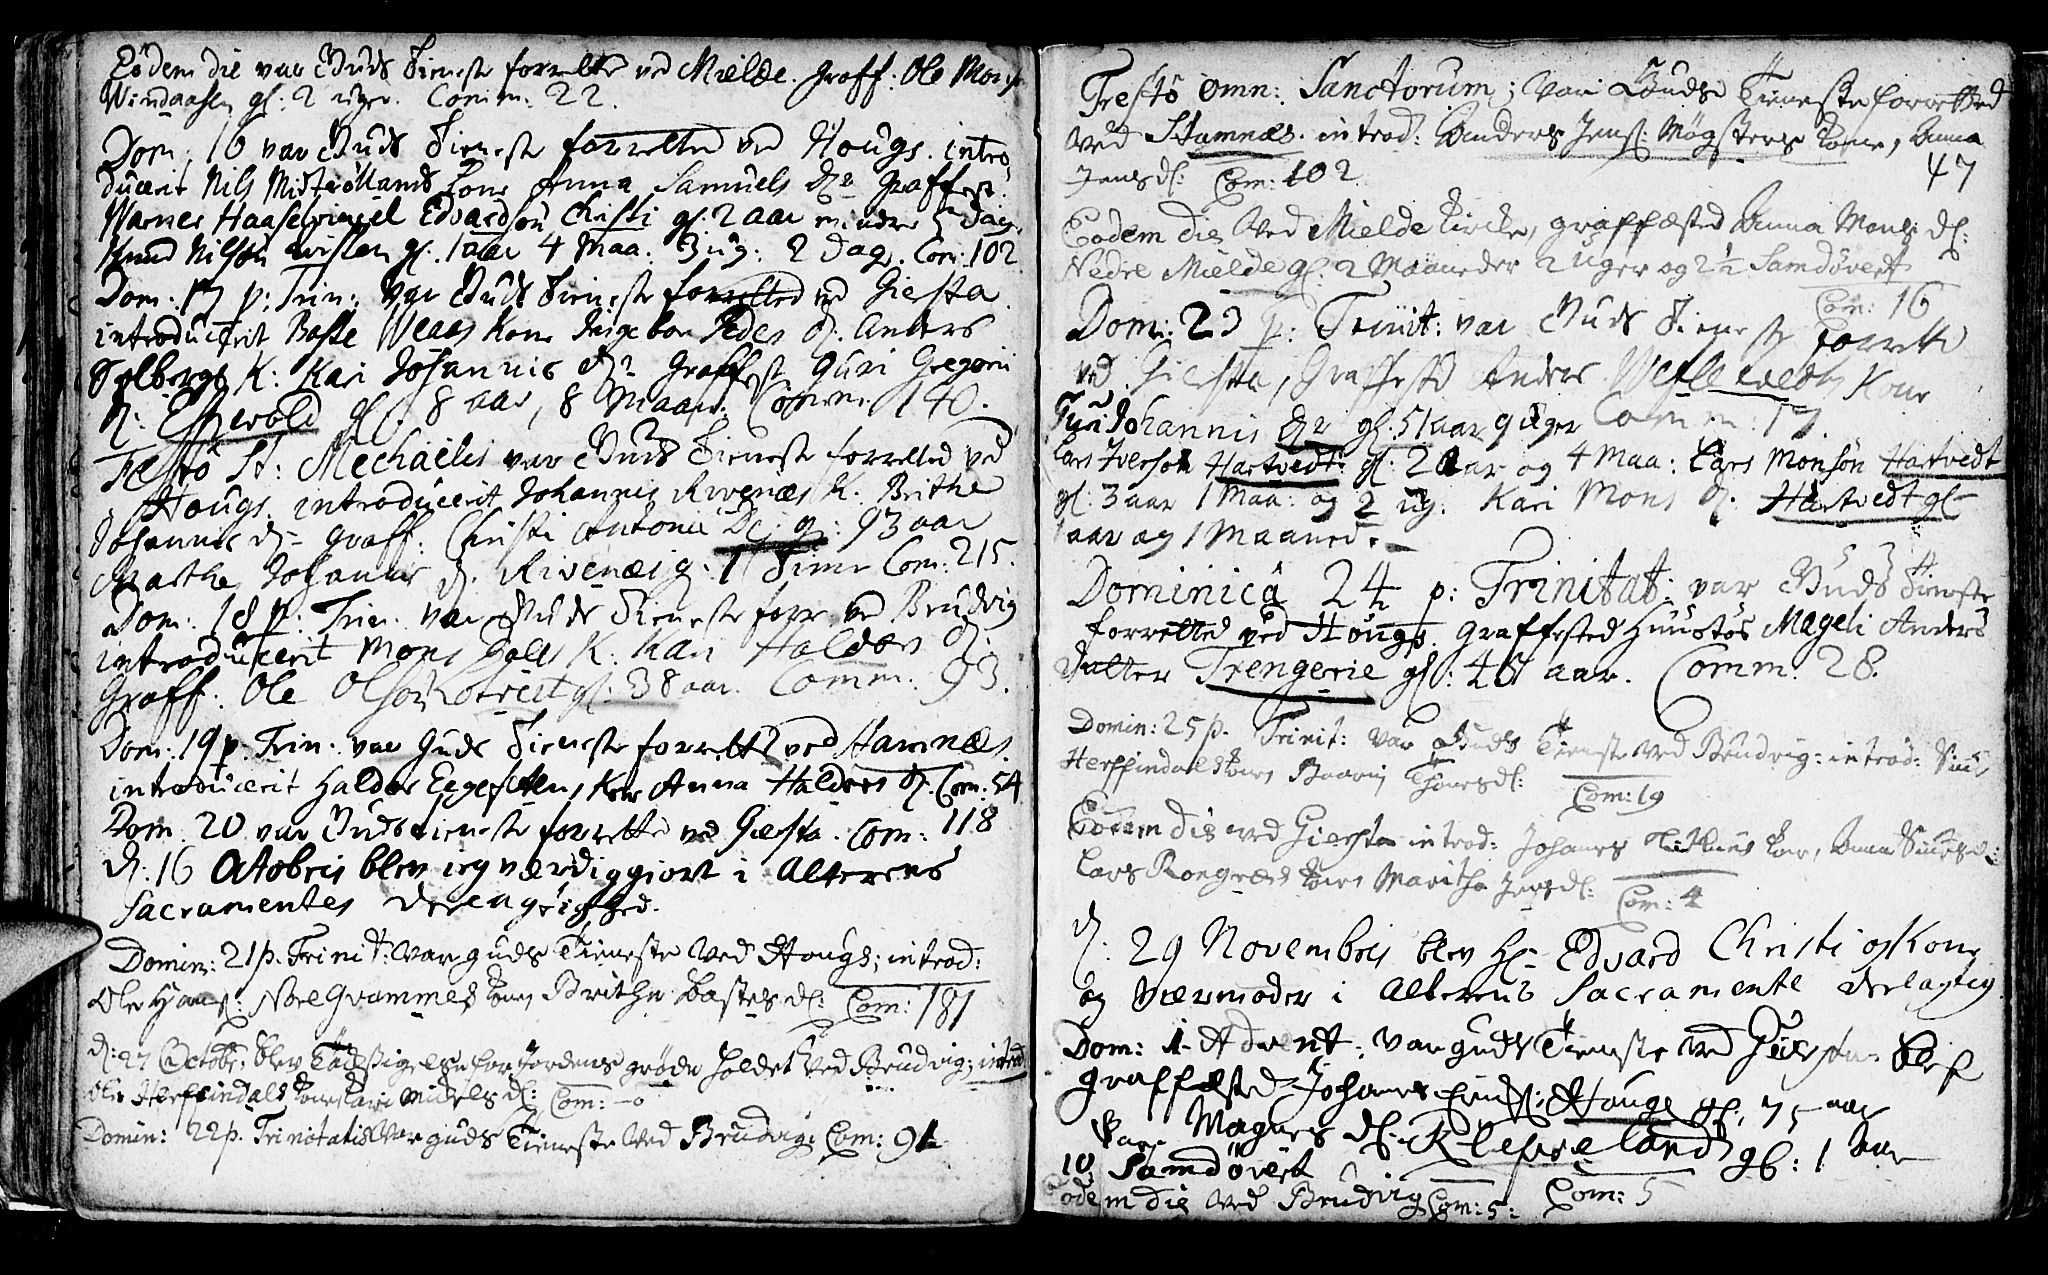 Eodem die var Guds Tieneste forrettet ved Mielde. Graff: Ole Mons
Windaasen gl: 2 uger. Comm: 22.
Dom: 16 var Guds Tieneste forretted ved Hougs. intro
ducerit Nils Midtrollands Kone Anna Samuels dr graffest:
Warnes Haaselvingel Edvard søn Christi gl: 2 aar mindre 5 dage
Knud Nilsøn gl. 1 aar 4 Maa. 3 ug: 2 dage. Com: 102
Dom. 17 p: Trin: var Guds Tieneste forretted ved Giersta
introducerit Basse Weaas Kone Ingebor Peders d. Anders
Solbergs K: Kari Johannis dr graffest Guri Gregorii
d. gl. 8 aar, 8 Maan: Comm: 140.
Festo St: Mechaelis var Guds Tieneste forretted ved
Hougs. introducerit Johannis Rivenæs K. Brithe
Johannis d. graff: Christi Antonii D: g: 93 aar
Marthe Johannis d. Rivenæs g: 1 Time Com: 215.
Dom: 18 p: Trin. var Guds Tieneste forr: ved Brudvig
introducerit Mons K. Kari Haldors d:
Graff: Ole Olsøn gl: 38 aar. Comm: 93.
Dom: 19 p: Trin: var Guds Tieneste forrettet ved Stamnæs.
introducerit Haldor Kone Anna Haldors d. Com: 54
Dom. 20 var Guds tieneste forrettet ved Giersta. Com: 118
d: 16 Octobris blev ieg værdiggiort i Alterens
Sacramentes
Domin: 21 p. Trinit: var guds Tieneste ved Hougs; introd:
Ole Hans: Nore Gvammes Kone Brithe Bastesd: Com: 181
d: 27 Octobr: blev Tachsigelse for Jordens grøde holdet ved Brudvig; introd
Herffindals Kone Kari Nielsd: Com: 0
Domin: 22 p. Trinitatis var guds Tieneste ved Brudvig Com: 91
Festo Omn: Sanctorum; var Guds Tieneste forretted
ved Stamnæs. introd: Anders Jens: Møgsters Kone, Anna
Jensd: Com: 102
47
Eodem die ved Mielde Kircke, graffæsted Anna Mons d:
Nedre Mielde gl. 2 Maaneder 2 Uger og 2½ Samdøvert
Com: 16
Dom: 23 p: Trinit: var Guds Tieneste forrette
ved Giersta, Graffested Anders Kone
Johannis dr gl. 51 aar 9 uger Comm: 17.
Lars Iversøn Hartvedt gl: 2 aar og 4 Maa: Lars Monsøn Hartvedt
gl: 3 aar 1 Maa: og 2 ug: Kari Mons d. Hartvedt gl
1 aar og 1 Maaned.
Dominica 24 p: Trinitat: var Guds Tieneste
forretted ved Hougs. Graffested Mageli Anders
datter Trengereie gl: 48 aar. Comm. 28.
Domin: 25 p. Trinit: var Guds Tieneste ved Brudvig: introd:
Herffindals Kone Baarni Com: 19
Eodem die ved Giersta introd: Johanes Kone, Anna
Lars Kone Maritha Jensd: Com: 4
d. 29 Novembris blev Hr Edvard Christi og Kone
og Værmoder i Alterens Sacramente delagtig
Dom: 1 Advent, var guds Tieneste ved Giersta
graffæsted Johanes Hougs gl: 75 aar
Magnes d: gl: 1 Aar
10 Samdøvert Com: 5
Eodem die ved Brudvig Com: 5: